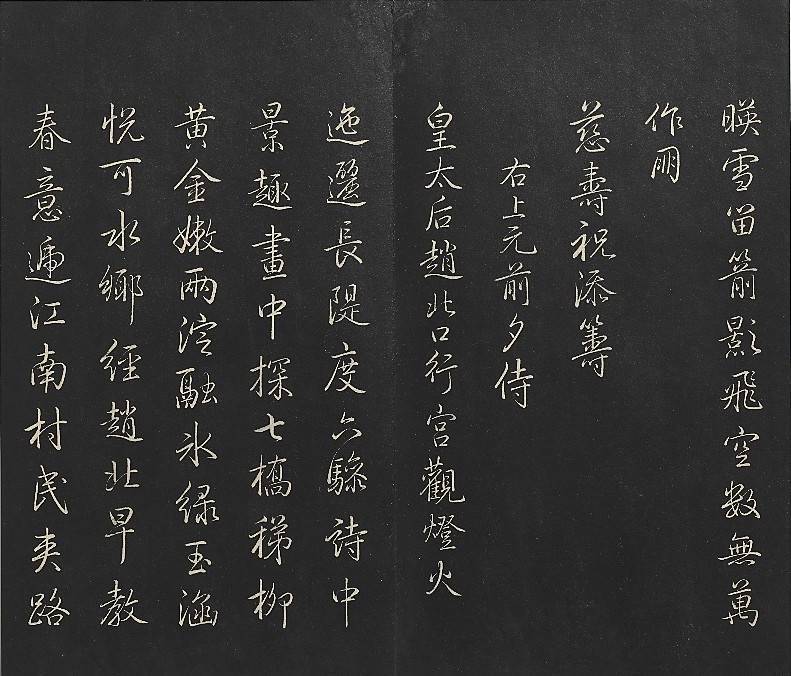 暎雪留箭影飛空數無萬
作朋
慈壽祝添籌
右上元前夕侍
皇太后趙北口行宫觀燈火
迤邐長隄度六驂詩中
景趣畫中探七橋稊柳
黃金嫩兩淀融氷綠玉涵
悦可水鄉經趙北早教
春意遞江南村民夾路